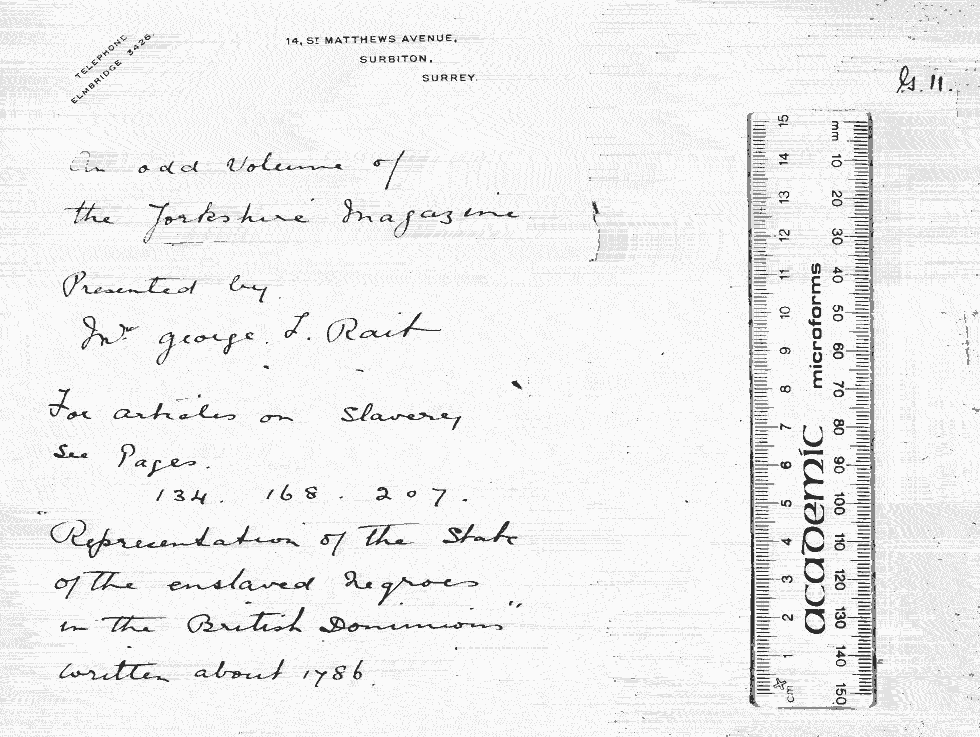 TELEPHONE
ELMBRIDGE 3426.
14, ST MATTHEWS AVENUE,
SURBITON,
SURREY.
Gs. 11.
An odd Volume of
the Yorkshire Magazine
Presented by
Mr George. L. Rait
For articles on Slavery
See Pages.
134. 168. 207.
"Representation of the State
of the enslaved Negroes
in the British Dominions"
written about 1786.
academic microforms
mm 10 20 30 40 50 60 70 80 90 100 110 120 130 140 150
cm 1 2 3 4 5 6 7 8 9 10 11 12 13 14 15